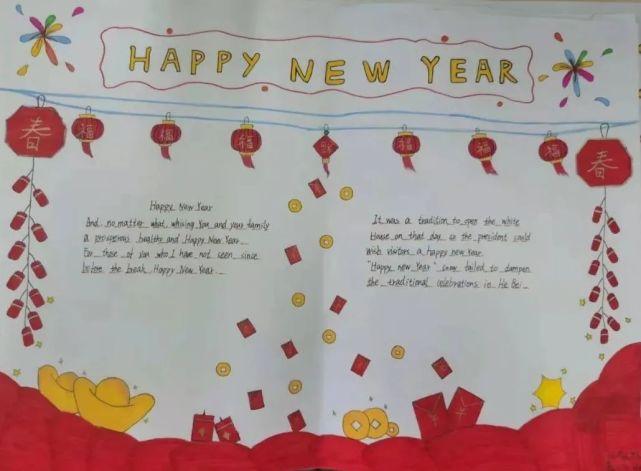 HAPPY NEW YEAR
春
福
福
福
福
福
福
春
Happy New Year
And no matter what whising You and your family
a prosperous healthy and Happy New Year
For those of you who I have not seen since
before the break Happy New Year
It was a tradition to open the white
House on that day so the president could
wish visitors a happy new Year
"Happy new Year" snow failed to dampen
the traditional celebrations in He Bei